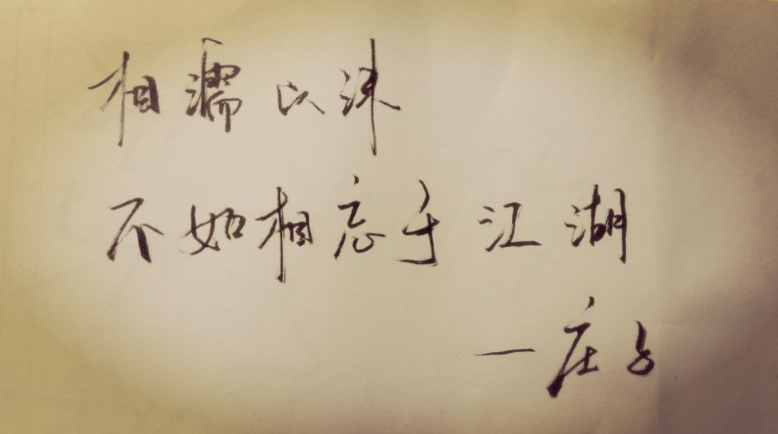 相濡以沫
不如相忘于江湖
—庄子